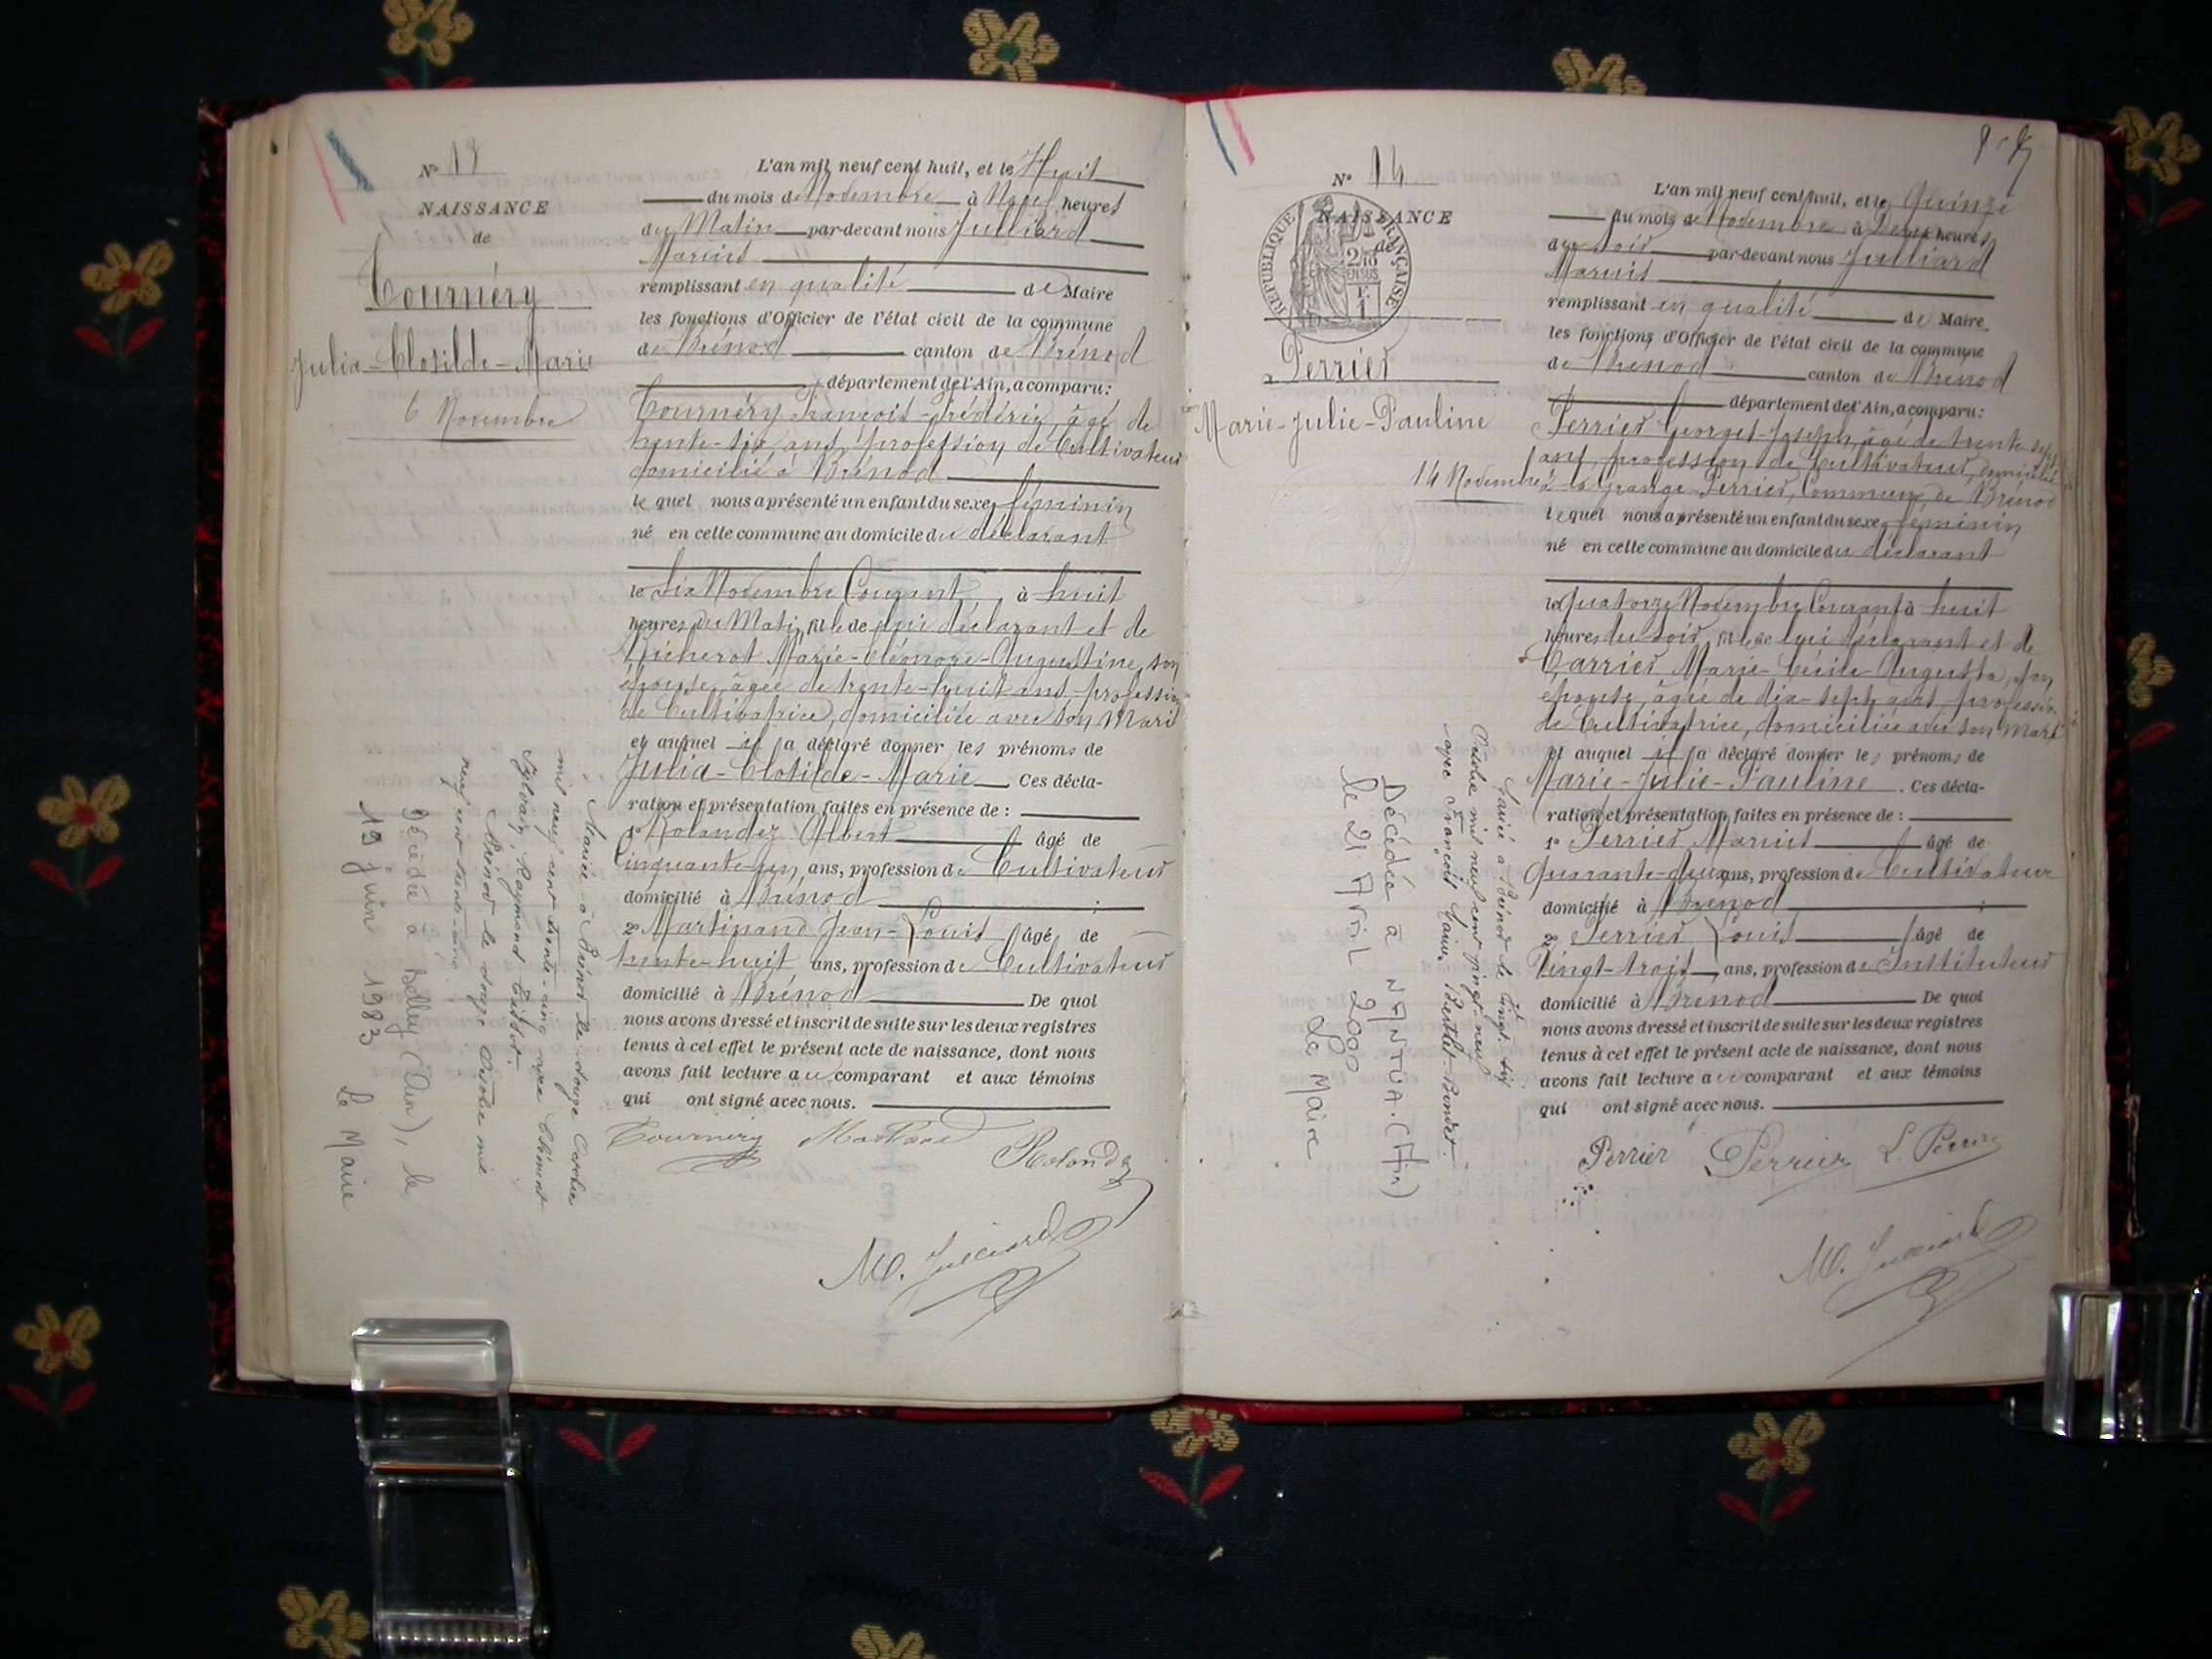 N° 13
NAISSANCE
de
Tournéry
Julia-Clotilde-Marie
6 Novembre
L'an mil neuf cent huit, et le Huit
du mois de Novembre à Neuf heures
du Matin par-devant nous Julliard
Marius
remplissant en qualité de Maire
les fonctions d'Officier de l'état civil de la commune
de Brénod canton de Brénod
département de l'Ain, a comparu:
Tournéry François-Frédéric, âgé de
trente-six ans, profession de Cultivateur
domicilié à Brénod
le quel nous a présenté un enfant du sexe féminin
né en cette commune au domicile du déclarant
le six Novembre Courant à huit
heures du Matin, fille de lui déclarant et de
Marie-Eléonore-Augustine, son
épouse, âgée de trente-huit ans, profession
de Cultivatrice, domiciliée avec son Mari
et auquel il a déclaré donner les prénoms de
Julia-Clotilde-Marie Ces décla-
ration et présentation faites en présence de :
1° Rolandez Albert âgé de
Cinquante-un ans, profession de Cultivateur
domicilié à Brénod ;
2° Martinand Jean-Louis âgé de
trente-huit ans, profession de Cultivateur
domicilié à Brénod De quoi
nous avons dressé et inscrit de suite sur les deux registres
tenus à cet effet le présent acte de naissance, dont nous
avons fait lecture au comparant et aux témoins
qui ont signé avec nous.
Tournéry Martinand Rolandez
M. Julliard
Mariée à Brénod le douze Octobre
mil neuf cent trente-cinq avec Clément
Sylvain, Raymond Tissot.
Brénod le douze Octobre mil
neuf cent trente-cinq
Décédée à Belley (Ain), le
19 juin 1983 Le Maire
N° 14
NAISSANCE
de
RÉPUBLIQUE FRANÇAISE
2/10 EN SUS
F. 1
Perrier
Marie-Julie-Pauline
14 Novembre
L'an mil neuf cent huit, et le Quinze
du mois de Novembre à Deux heures
du soir par-devant nous Julliard
Marius
remplissant en qualité de Maire
les fonctions d'Officier de l'état civil de la commune
de Brénod canton de Brénod
département de l'Ain, a comparu:
Perrier Georges-Joseph, âgé de trente-sept
ans, profession de Cultivateur, domicilié
à la Grange Perrier, Commune de Brénod
lequel nous a présenté un enfant du sexe féminin
né en cette commune au domicile du déclarant
le quatorze Novembre Courant à huit
heures du soir, fille de lui déclarant et de
Carrier Marie-Cécile-Augusta, son
épouse, âgée de dix-sept ans, profession
de Cultivatrice, domiciliée avec son Mari
et auquel il a déclaré donner les prénoms de
Marie-Julie-Pauline . Ces décla-
ration et présentation faites en présence de :
1° Perrier Marius âgé de
Quarante-deux ans, profession de Cultivateur
domicilié à Brénod ;
2° Perrier Louis âgé de
Vingt-trois ans, profession de Instituteur
domicilié à Brénod De quoi
nous avons dressé et inscrit de suite sur les deux registres
tenus à cet effet le présent acte de naissance, dont nous
avons fait lecture au comparant et aux témoins
qui ont signé avec nous.
Perrier Perrier L. Perrier
M. Julliard
Mariée à Brénod le vingt-six
Octobre mil neuf cent vingt-neuf
avec François Berthet-Bondet
Décédée à NANTUA. (Ain)
le 21 AVRIL 2000
Le Maire